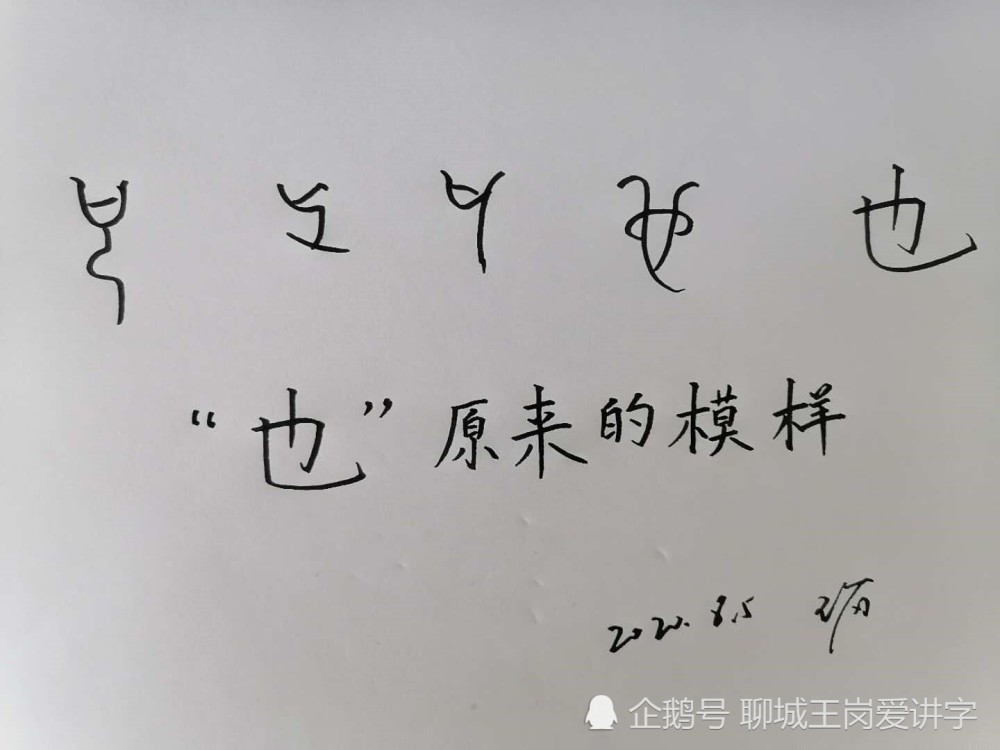 也
“也”原来的模样
2020.8.5
企鹅号 聊城王岗爱讲字